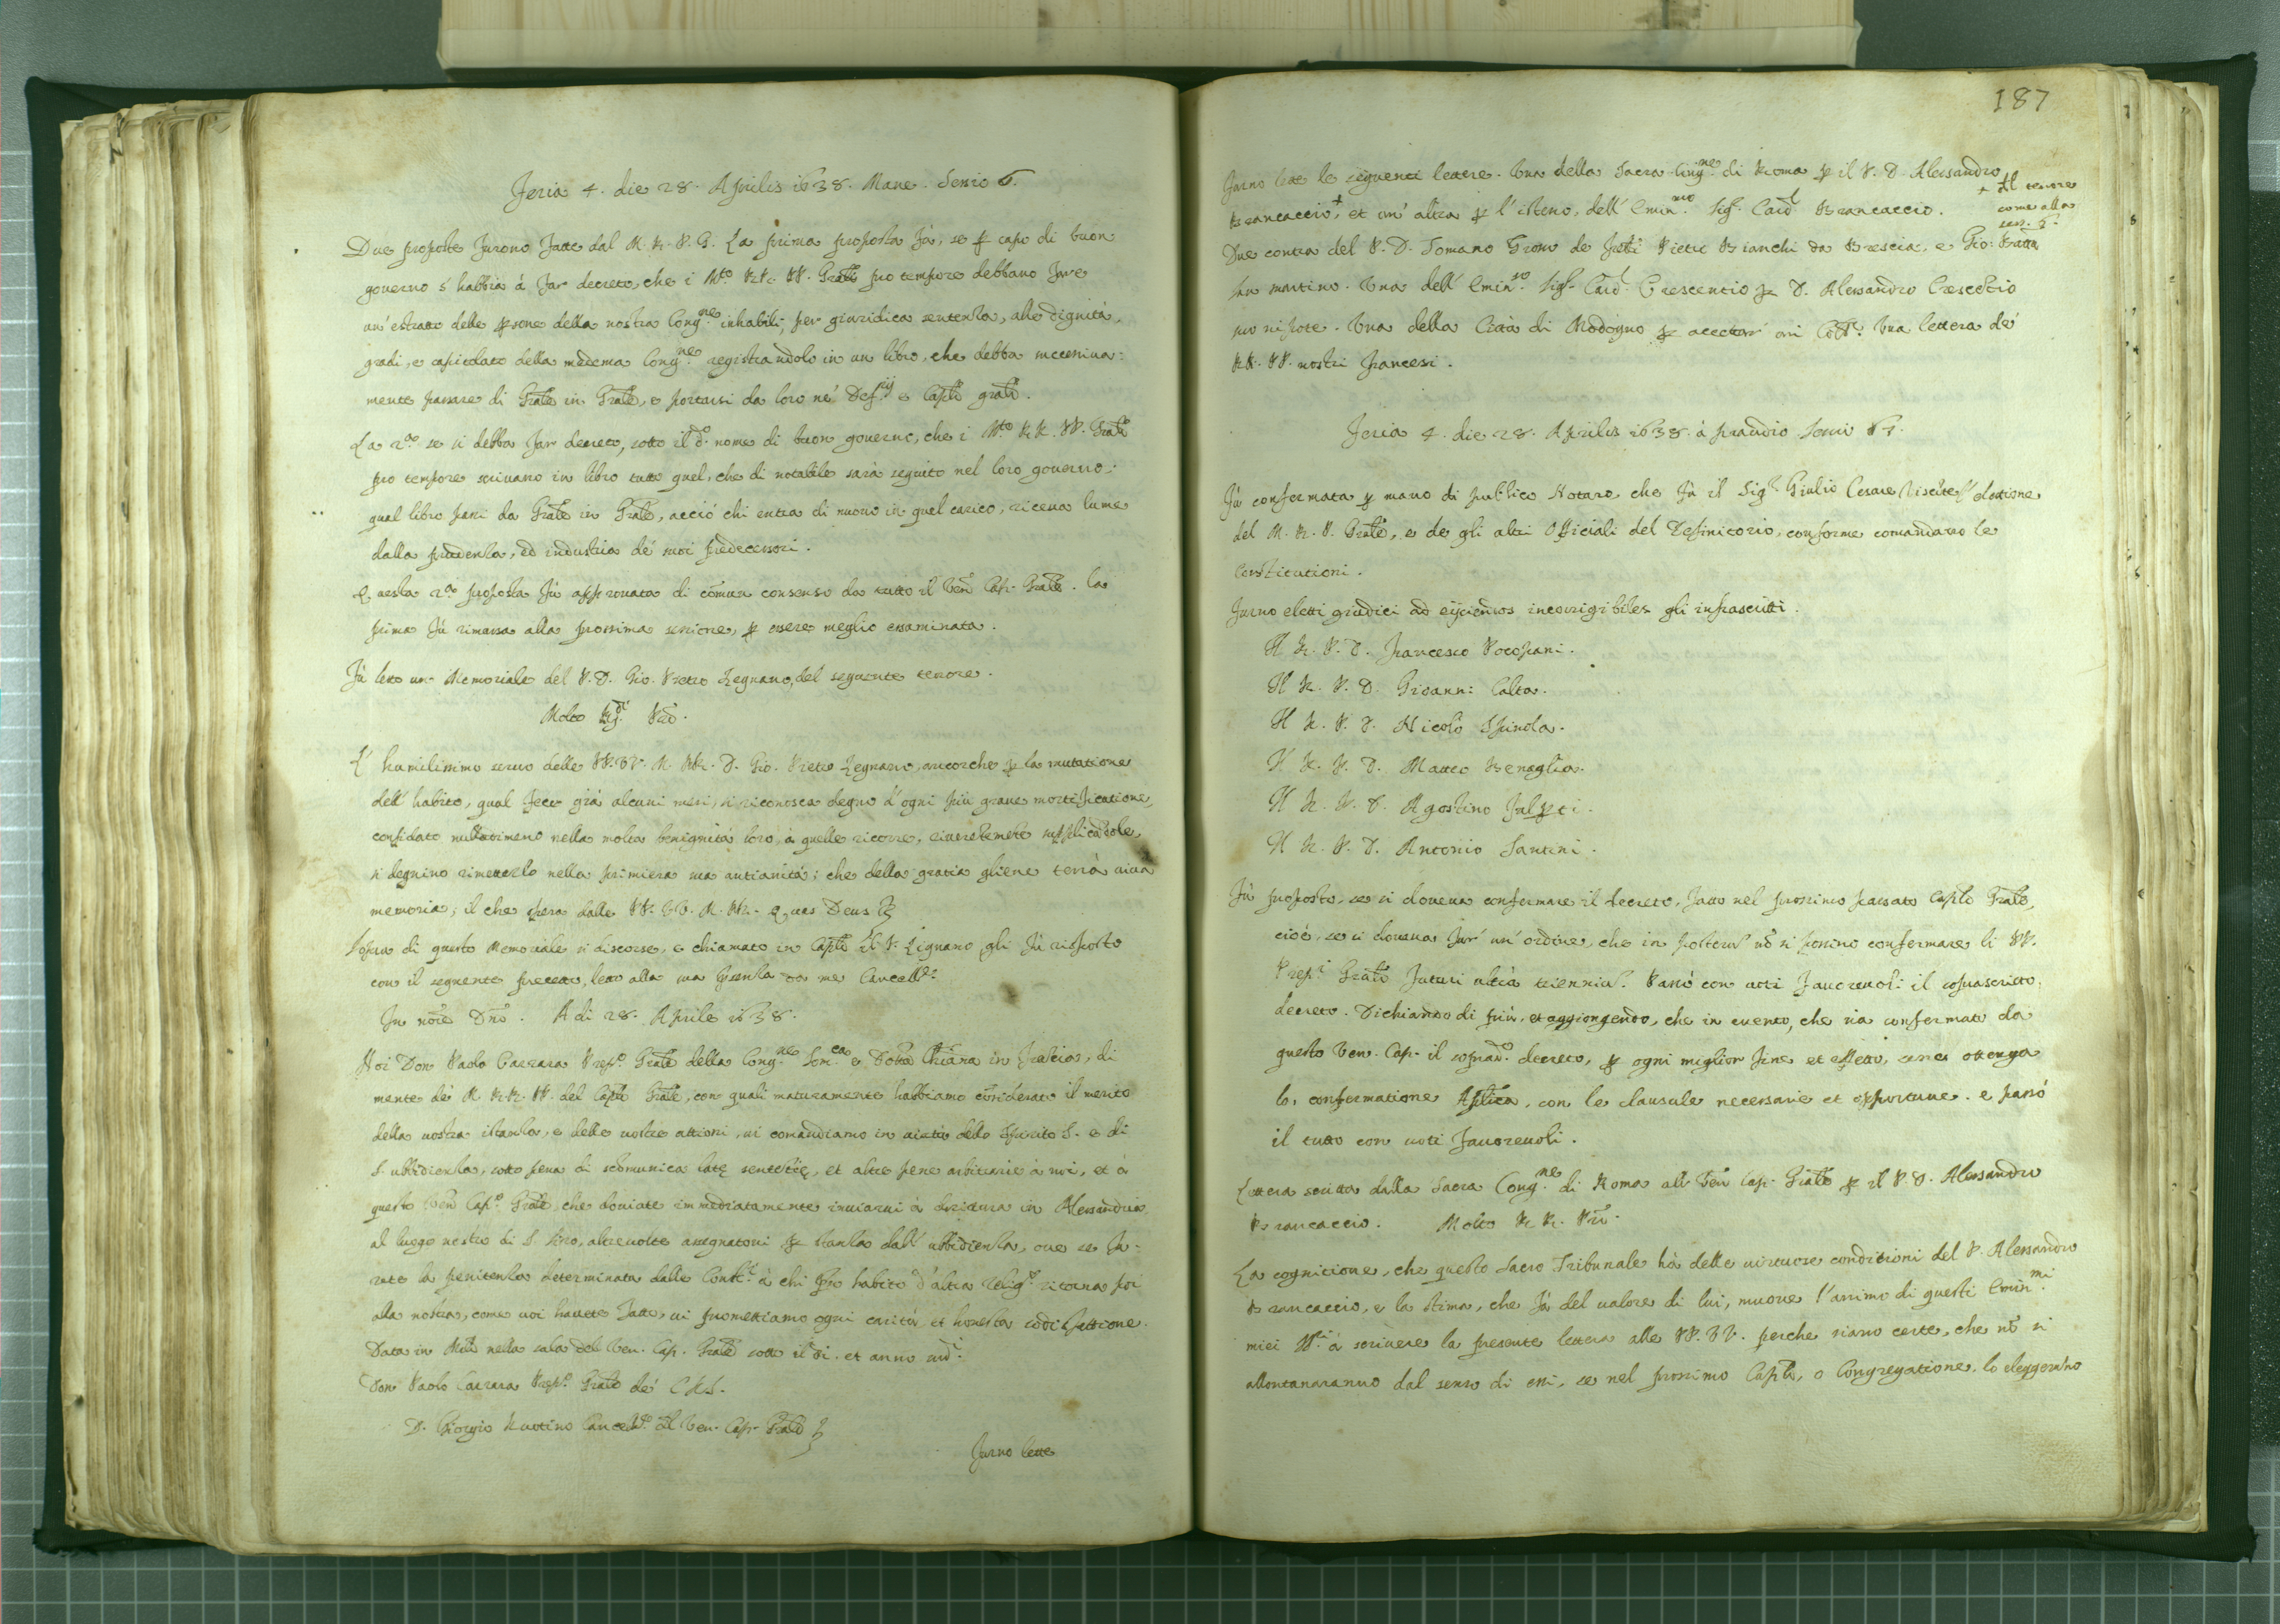 Feria 4. die 28. Aprilis 1638. Mane. Sessio 6.
Due proposte furono fatte dal M. R. P. G. La prima proposta fà, se p capo di buon
governo s' habbia à far decreto, che i M.to RR. PP. Grali pro tempore debbano fare
un' estratto delle psone della nostra Cong.ne inhabili, per giuridica sentenza, alle dignità,
gradi, e capitolato della medema Cong.ne registrandolo in un libro, che debba successiva-
mente passare di Grale in Grale, e portarsi da loro ne' Def.rij e Caplo grale.
La 2.a se si debba far decreto, sotto il d.o nome di buon governo, che i M.to RR. PP. Grali
pro tempore scrivano in libro tutto quel, che di notabile sarà seguito nel loro governo.
qual libro passi da Grale in Grale, acciò chi entra di nuovo in quel carico, riceva lume
dalla prudenza, ed industria de' suoi predecessori.
Questa 2.a proposta fù approvata di comun consenso da tutto il Ven. Cap. Grale. la
prima fù rimessa alla prossima sessione, p essere meglio essaminata.
Fù letto un Memoriale del P. D. Gio. Pietro Legnano, del seguente tenore.
Molto R.di Pad.
L' humilissimo servo delle PP. VV. M. RR. D. Gio. Pietro Legnano, ancorche p la mutatione
dell' habito, qual fece già alcuni mesi, si riconosca degno d' ogni più grave mortificatione,
confidato nulladimeno nella molta benignità loro, à quelle ricorre, riveretemete supplicadole,
si degnino rimetterlo nella primiera sua antianità; che della gratia gliene terrà viva
memoria; il che spera dalle PP. VV. M. RR. Quas Deus
Sopra di questo Memoriale si discorse, e chiamato in Caplo il P. Lignano, gli fù risposto
con il seguente precetto, letto alla sua psenza da me Cancell.re
In noie Dno. A di 28. Aprile 1638.
Noi Don Paolo Carrara Prep.o Grale della Cong.ne Som.ca e Dottr.a Chiana in Francia, di
mente de' M. RR. PP. del Caplo Grale, con quali maturamente habbiamo considerato il merito
della vostra istanza, e delle vostre attioni, vi comandiamo in virtù dello Spirito S. e di
S. ubbidienza, sotto pena di scomunica latę sentetię, et altre pene arbitrarie à noi, et à
questo Ven Cap.o Grale, che doviate immediatamente inviarvi à drittura in Alessandria
al luogo nostro di S. Siro, altrevolte assegnatovi p stanza dall' ubbidienza, ove se fa-
rete la penitenza determinata dalle Const.i à chi preso habito d' altra Relig.e ritorna poi
alla nostra, come voi havete fatto, vi promettiamo ogni carità, et honesta sodisfattione.
Data in Mil.o nella sala del Ven. Cap. Grale sotto il di. et anno sud.i
Don Paolo Carrara Prep.o Grale de' C.R.S.
D. Giorgio Cancell.re del Ven. Cap. Grale
Furno lette
187
Furno lette le seguenti lettere. Una della Sacra Cong.ne di Roma p il P. D. Alessandro
Brancaccio,+ et un' altra p l' istesso, dell' Emin.mo Sig.r Card. Brancaccio.
+ Il tenore
come alla
sess. 6.
Due contra del P. D. Tomaso Grosso de frati Pietro Bianchi da Brescia, e Gio: Batta
san martino. Una dell' Emin.mo Sig.r Card. Crescentio p D. Alessandro Crescetio
suo nipote. Una della Città di Modogno p accettar' ivi Coll.o Una lettera de'
RR. PP. nostri francesi.
Feria 4. die 28. Aprilis 1638. à prandio Sessio 7.
Fù confermata p mano di publico Notaro che fù il Sig.r Giulio Cesare l' elettione
del M. R. P. Grale, e de gli altri Officiali del Definitorio, conforme comandano le
Constitutioni.
Furno eletti giudici ad eijciendos incorrigibiles gli infrascritti.
Il R. P. D. Francesco Pocopani.
Il R. P. D. Giovanni Calta.
Il R. P. D. Nicolò Spinola.
Il R. P. D. Matteo Benaglia.
Il R. P. D. Agostino
Il R. P. D. Antonio Santini.
Fù proposto, se si doveva confermare il decreto, fatto nel prossimo passato Caplo Grale,
cioè, se si doveva far' un' ordine, che in posterū nō si possino confermare li PP.
Prep.i Grali futuri ultrà trienniū. Passò con voti favorevoli il soprascritto
decreto. Dichiarando di più, et aggiongendo, che in evento, che sia confermato da
questo Ven. Cap. il soprad.o decreto, p ogni miglior fine et effetto, se ne ottenga
la confermatione Aplica, con le clausule necessarie et opportune. e passò
il tutto con voti favorevoli.
Lettera scritta dalla Sacra Cong.ne di Roma all' Ven Cap. Grale p il P. D. Alessandro
Brancaccio. Molto RR. Pri.
La cognitione, che questo Sacro Tribunale hà delle virtuose conditioni del P. Alessandro
Brancaccio, e la stima, che fà del valore di lui, muove l' animo di questi Emin.mi
miei SS.ri à scrivere la presente lettera alle PP. VV. perche siano certe, che nō si
allontanaranno dal senso di essi, se nel prossimo Caplo, o Congregatione, lo eleggerāno